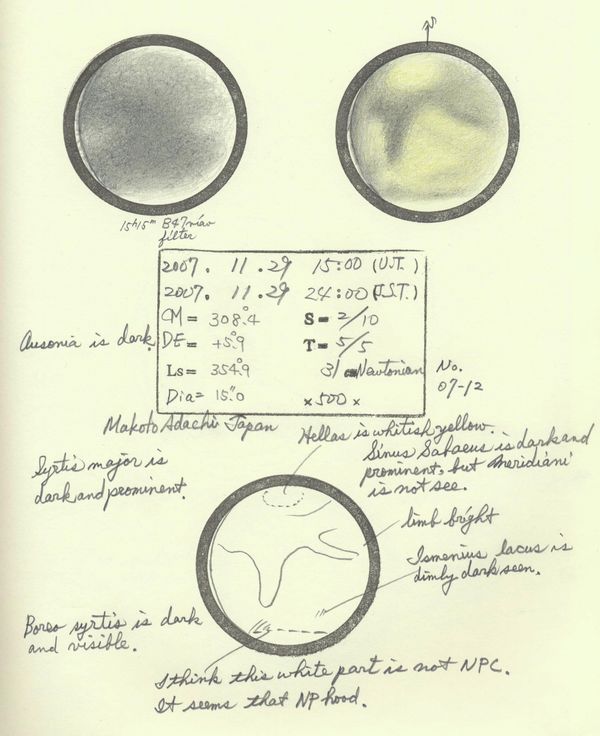 S
15h15m B47
filter
2007. 11.29 15:00 (U.T.)
2007. 11.29 24:00 (J.S.T.)
CM = 308.°4 S = 2/10
DE = +5.°9 T = 5/5
Ls = 354.°9 31 cm Newtonian
Dia = 15.″0 ×500 ×
Ausonia is dark.
No.
07-12
Makoto Adachi Japan
Hellas is whitish yellow.
Sinus Sabaeus is dark and
prominent, but Meridiani
is not see.
Syrtis major is
dark and prominent.
limb bright
Ismenius lacus is
dimly dark seen.
Boreo syrtis is dark
and visible.
I think this white part is not NPC.
It seems that NP hood.